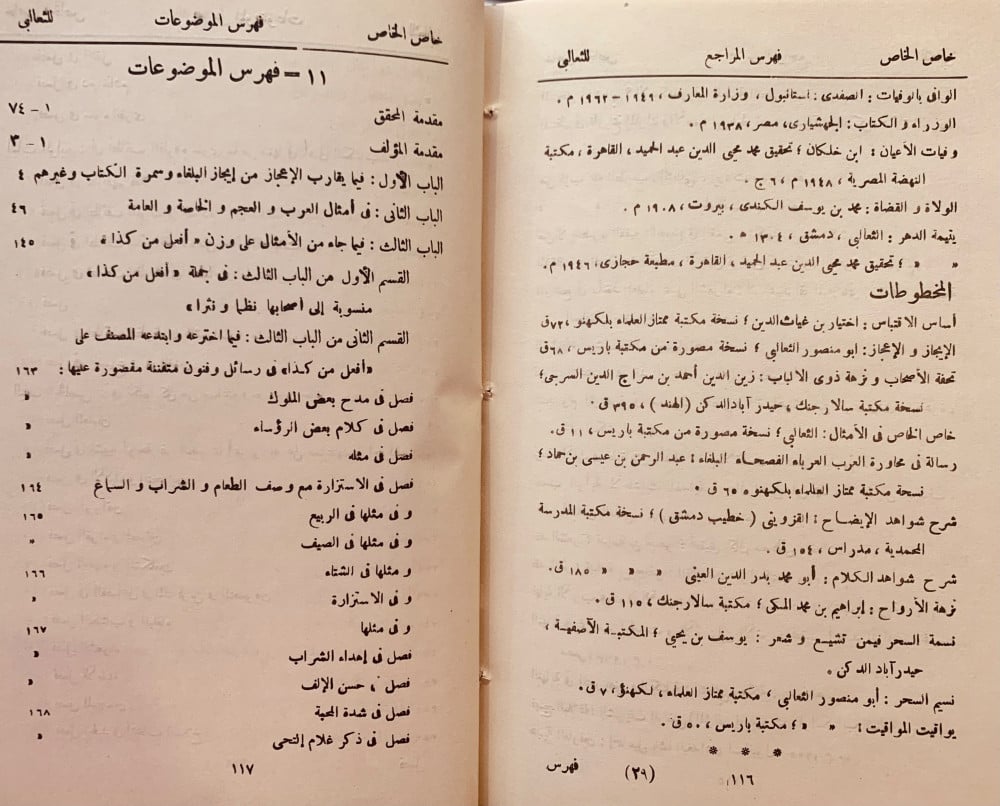 خاص الخاص فهرس المراجع للثعالبى
الوافى بالوفيات : الصفدى : استانبول ، وزارة المعارف ، ١٩٤٩ – ١٩٦٢ م .
الوزراء و الكتاب : الجهشيارى، مصر ، ١٩٣٨ م .
وفيات الأعيان : ابن خلكان ؛ تحقيق محمد محيى الدين عبد الحميد ، القاهرة ، مكتبة
النهضة المصرية ، ١٩٤٨ م ، ٦ ج .
الولاة و القضاة : محمد بن يوسف الكندى ، بيروت ، ١٩٠٨ م .
يتيمة الدهر : الثعالبى ، دمشق ، ١٣٠٤ ه .
» » ؛ تحقيق محمد محيى الدين عبد الحميد ، القاهرة ، مطبعة حجازى، ١٩٤٦ م.
المخطوطات
أساس الاقتباس : اختيار بن غياث الدين ؛ نسخة مكتبة ممتاز العلماء بلكهنو ،٧٢ق
الإيجاز و الإعجاز : ابو منصور الثعالبى ؛ نسخة مصورة من مكتبة باريس ، ٦٨ق
تحفة الأصحاب و نزهة ذوى الالباب : زين الدين أحمد بن سراج الدين السرجى؛
نسخة مكتبة سالارجنك ، حيدر آباد الدكن ( الهند ) ، ٣٩٥ ق .
خاص الخاص فى الأمثال : الثعالبى ؛ نسخة مصورة من مكتبة باريس ، ١١ ق .
رسالة فى محاورة العرب العرباء الفصحاء البلغاء : عبد الرحمن بن عيسى بن حماد ؛
نسحة مكتبة ممتاز العلماء بلكهنو ، ٦٥ ق .
شرح شواهد الإيضاح : القزوينى ( خطيب دمشق ) ؛ نسخة مكتبة المدرسة
المحمدية ، مدراس ، ١٥٤ ق .
شرح شواهد الكلام : أبو محمد بدر الدين العينى » » » ١٨٥ ق.
نزهة الأرواح : إبراهيم بن محمد المكى ؛ مكتبة سالارجنك ، ١١٥ ق .
نسمة السحر فيمن تشيع و شعر : يوسف بن يحيى ؛ المكتبة الآصفية ،
حيدرآباد الدكن .
نسيم السحر : أبو منصور الثعالبى ، مكتبة ممتاز العلماء ، لكهنؤ ، ٧ ق .
يواقيت المواقيت : » » ؛ مكتبة باريس ، ٥٠ ق .
* * *
١١٦ (٢٩) فهرس
خاص الخاص فهرس الموضوعات للثعالبى
١١ – فهرس الموضوعات
مقدمة المحقق ١ – ٧٤
مقدمة المؤلف ١ – ٣
الباب الأول : فيما يقارب الإعجاز من إيجاز البلغاء وسحرة الكتاب وغيرهم ٤
الباب الثانى : فى أمثال العرب و العجم و الخاصة و العامة ٤٦
الباب الثالث : فيما جاء من الأمثال على وزن « أفعل من كذا » ١٤٥
القسم الأول من الباب الثالث : فى جملة « أفعل من كذا »
منسوبة إلى أصحابها نظما و نثرا »
القسم الثانى من الباب الثالث : فيما اخترعه وابتدعه المصنف على
«أفعل من كذا» فى رسائل وفنون متفننة مقصورة عليها : ١٦٣
فصل فى مدح بعض الملوك »
فصل فى كلام بعض الرؤساء »
فصل فى مثله »
فصل فى الاستزارة مع وصف الطعام و الشراب و السماع ١٦٤
و فى مثلها فى الربيع ١٦٥
و فى مثلها فى الصيف »
و مثلها فى الشتاء ١٦٦
و فى الاستزارة »
و فى مثلها ١٦٧
فصل فى إهداء الشراب »
فصل حسن الإلف »
فصل فى شدة المحبة ١٦٨
فصل فى ذكر غلام إلتحى »
١١٧